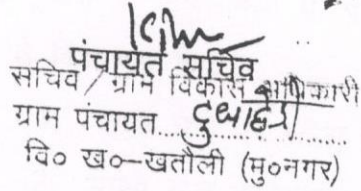 पंचायत सचिव
सचिव / ग्राम विकास अधिकारी
ग्राम पंचायत दुधाहेडी
वि० ख०-खतौली (मु०नगर)